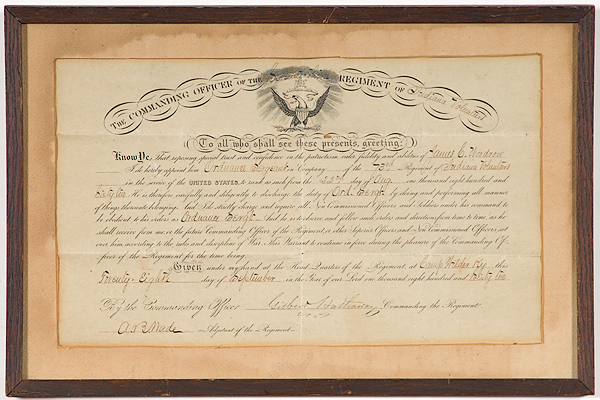 THE COMMANDING OFFICER OF THE REGIMENT OF Indiana Volunteers
To all who shall see these presents, greeting:
Know Ye, That reposing special trust and confidence in the patriotism, valor, fidelity and abilities of James C. Woodrow
I do hereby appoint him Ordnance Sergeant in Company of the 73rd Regiment of Indiana Volunteers
in the service of the UNITED STATES, to rank as such from the 23rd day of Aug one thousand eight hundred and
Sixty two. He is therefore carefully and diligently to discharge the duty of Ord. Sergt. by doing and performing all manner
of things thereunto belonging. And I do strictly charge and require all Non Commissioned Officers and Soldiers under his command to
be obedient to his orders as Ordnance Sergt. And he is to observe and follow such orders and directions from time to time, as he
shall receive from me, or the future Commanding Officer of the Regiment, or other Superior Officers and Non Commissioned Officers set
over him according to the rules and discipline of War. This Warrant to continue in force during the pleasure of the Commanding Of-
ficer of the Regiment for the time being.
Given under my hand at the Head Quarters of the Regiment, at Camp Ky. this
Twenty-Eighth day of September in the Year of our Lord one thousand eight hundred and sixty two.
By the Commanding Officer Gilbert Hathaway Commanding the Regiment
Wade Adjutant of the Regiment